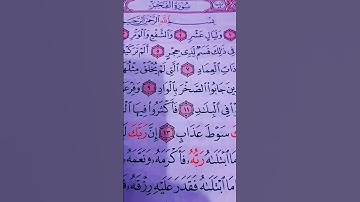 سُورَةُ الْفَجْرِ
بِسْمِ اللَّهِ الرَّحْمَٰنِ الرَّحِيمِ
وَلَيَالٍ عَشْرٍ ٢ وَالشَّفْعِ وَالْوَتْرِ ٣
فِي ذَٰلِكَ قَسَمٌ لِّذِي حِجْرٍ ٥ أَلَمْ تَرَ كَيْفَ
ذَاتِ الْعِمَادِ ٧ الَّتِي لَمْ يُخْلَقْ مِثْلُهَا
جَابُوا الصَّخْرَ بِالْوَادِ ٩ وَفِرْعَوْ
فِي الْبِلَادِ ١١ فَأَكْثَرُوا فِيهَا
سَوْطَ عَذَابٍ ١٣ إِنَّ رَبَّكَ
مَا ابْتَلَاهُ رَبُّهُ فَأَكْرَمَهُ وَنَعَّمَهُ
مَا ابْتَلَاهُ فَقَدَرَ عَلَيْهِ رِزْقَهُ